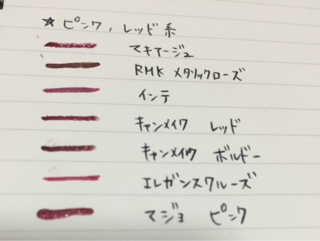 ☆ ピンク, レッド系
マキアージュ
RMK メタリックローズ
インテ
キャンメイク レッド
キャンメイク ボルドー
エレガンスクルーズ
マジョ ピンク